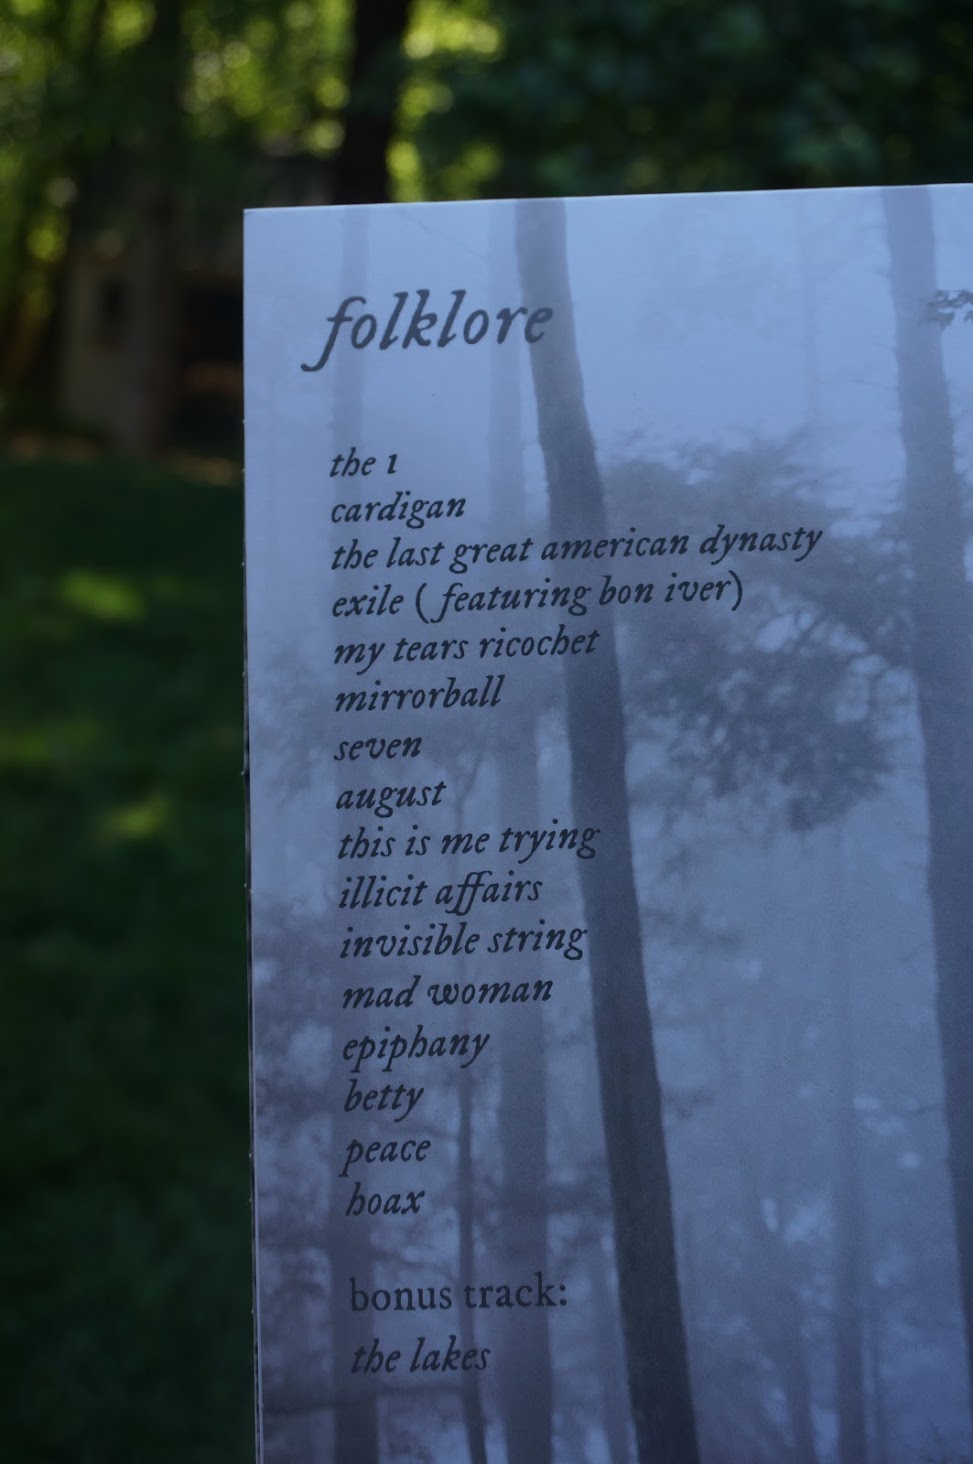 folklore
the 1
cardigan
the last great american dynasty
exile (featuring bon iver)
my tears ricochet
mirrorball
seven
august
this is me trying
illicit affairs
invisible string
mad woman
epiphany
betty
peace
hoax
bonus track:
the lakes